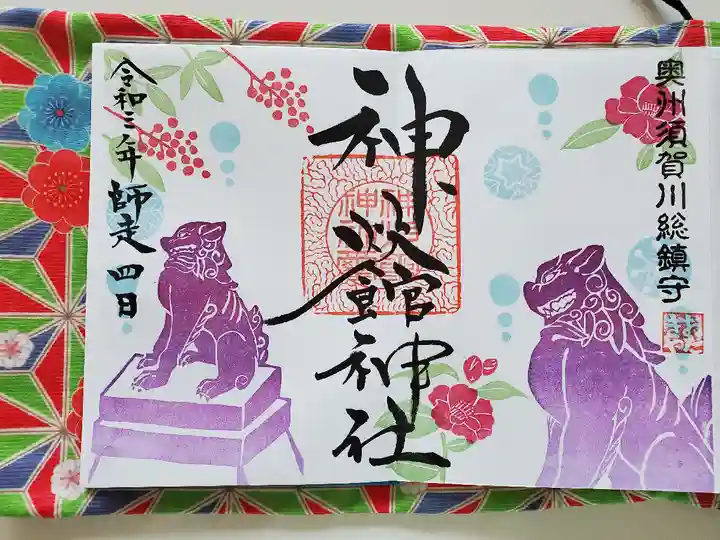 奥州須賀川総鎮守
神炊館神社
令和三年師走四日